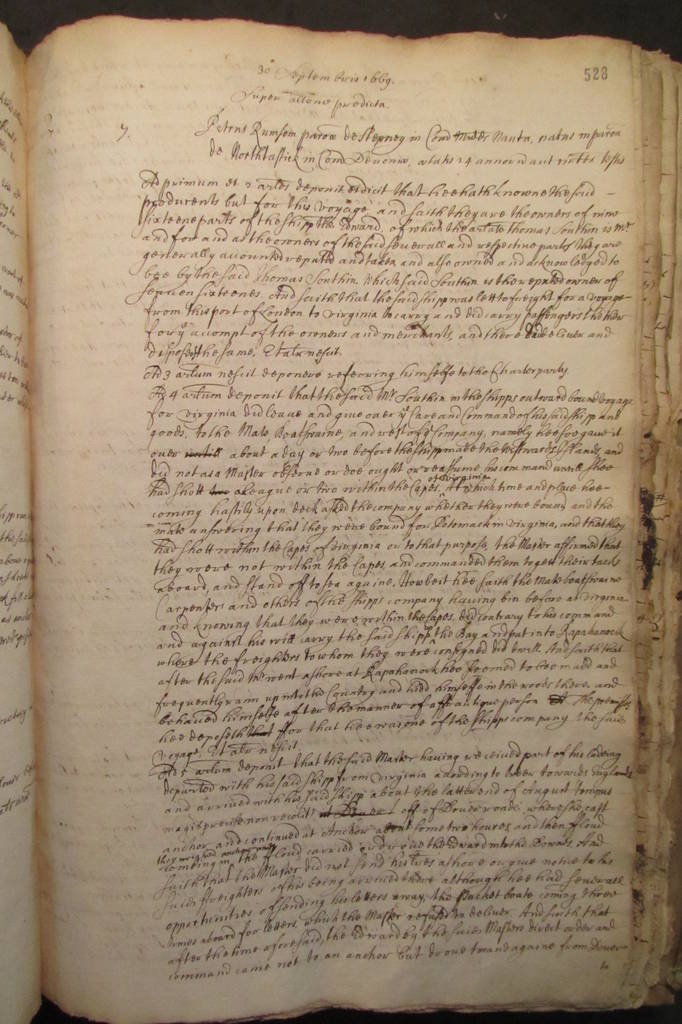 528
30 Septembris 1669.
Super allone predicta.
7. Petrus Rumsem paroa de Stepney in Com Midds Nauta, natus in paroa
de Northtassick in Com Devoniæ, ætatis 24 annor aut
Ad primum et 2 artlos deponit et dicit that hee hath knowne the said
producents but for this voyage and saith they are the owners of nine
sixteene parts of the shipp the Edward, of which the arlate Thomas Southin is Mr
and for and as the owners of the said severall and respective parts they are
generally accounted reputed and taken and also owned and acknowledged to
bee by the said Thomas Southin Which said Southin is the reputed owner of
seaven sixteenes, And saith that the said shipp was lett to freight for a voyage
from this port of London to Virginia to carry and did carry passengers thether
for ye accompt of the owners and merchants, and there deliver and
dispose of the same, Et alr nescit.
Ad 3 artum nescit deponere referring himselfe to the Charter party
Ad 4 artum deponit that the said Mr Southin in the shipps outward bound voyage
for Virginia did leave and give over ye care and command of his said shipp and
goods, to the Mate, Boatswaine, and rest of ye Company, namely hee soe gave it
over about a day or two before the shipp made the Westward Islands, and
did not as a Master observe or doe ought or reassume his command untill shee
had shott a league or two within the Capes of Virginia, At which time and place hee
coming hastily upon deck asked the company whether they were bound and the
mate answering that they were bound for Potomack in Virginia, and that they
had shott within the Capes of Virginia or to that purpose, the Master affirmed that
they were not within the Capes and commanded them to gett their tacks
aboard, and stand off to sea againe, Howbeit hee saith the Mate boatswaine
Carpenter and others of the shipps company having bin before at Virginia
and knowing that they were within the Capes, did contrary to his command
and against his will carry the said shipp the Bay and put into Rapahanock
where the freighters to whom they were consigned did dwell. And saith that
after the said went ashore at Rapahanock hee seemed to bee mad and
frequently ran up into the Country and hidd himselfe in the woods there, and
behaved himselfe after the manner of a person The premisses
hee deposeth for that hee was one of the shipps company the said
voyage, Et alr nescit
Ad 5 artum deponit that the said Master having received part of his lading
departed with his said shipp from Virginia to towards England
and arrived with his said shipp about the latter end of August
magis precise non recolit off of Dover roade where shee cast
anchor and continued at Anchor about some two houres, and then
they weighed anchor and
coming in the floud carried and drove the Edward into the Downes. And
saith that the Master did not send his l'res ashore or give notice to his
said freighters of his being arrived there although hee had severall
opportunities of sending his letters away, the Packet boate coming three
times aboard for letters which the Master refused to deliver. And saith that
after the time aforesaid, the Edward by the said Masters direct order and
command came not to an anchor but drove to and againe from Dover
to